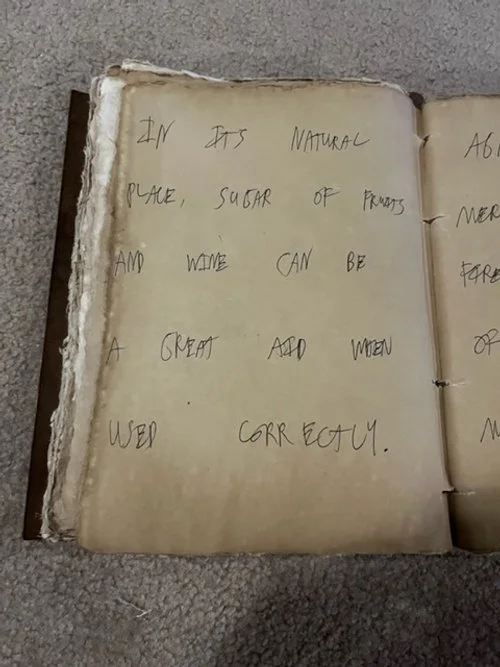 IN ITS NATURAL
PLACE, SUGAR OF FRUITS
AND WINE CAN BE
A GREAT AID WHEN
USED CORRECTLY.
MER
OF